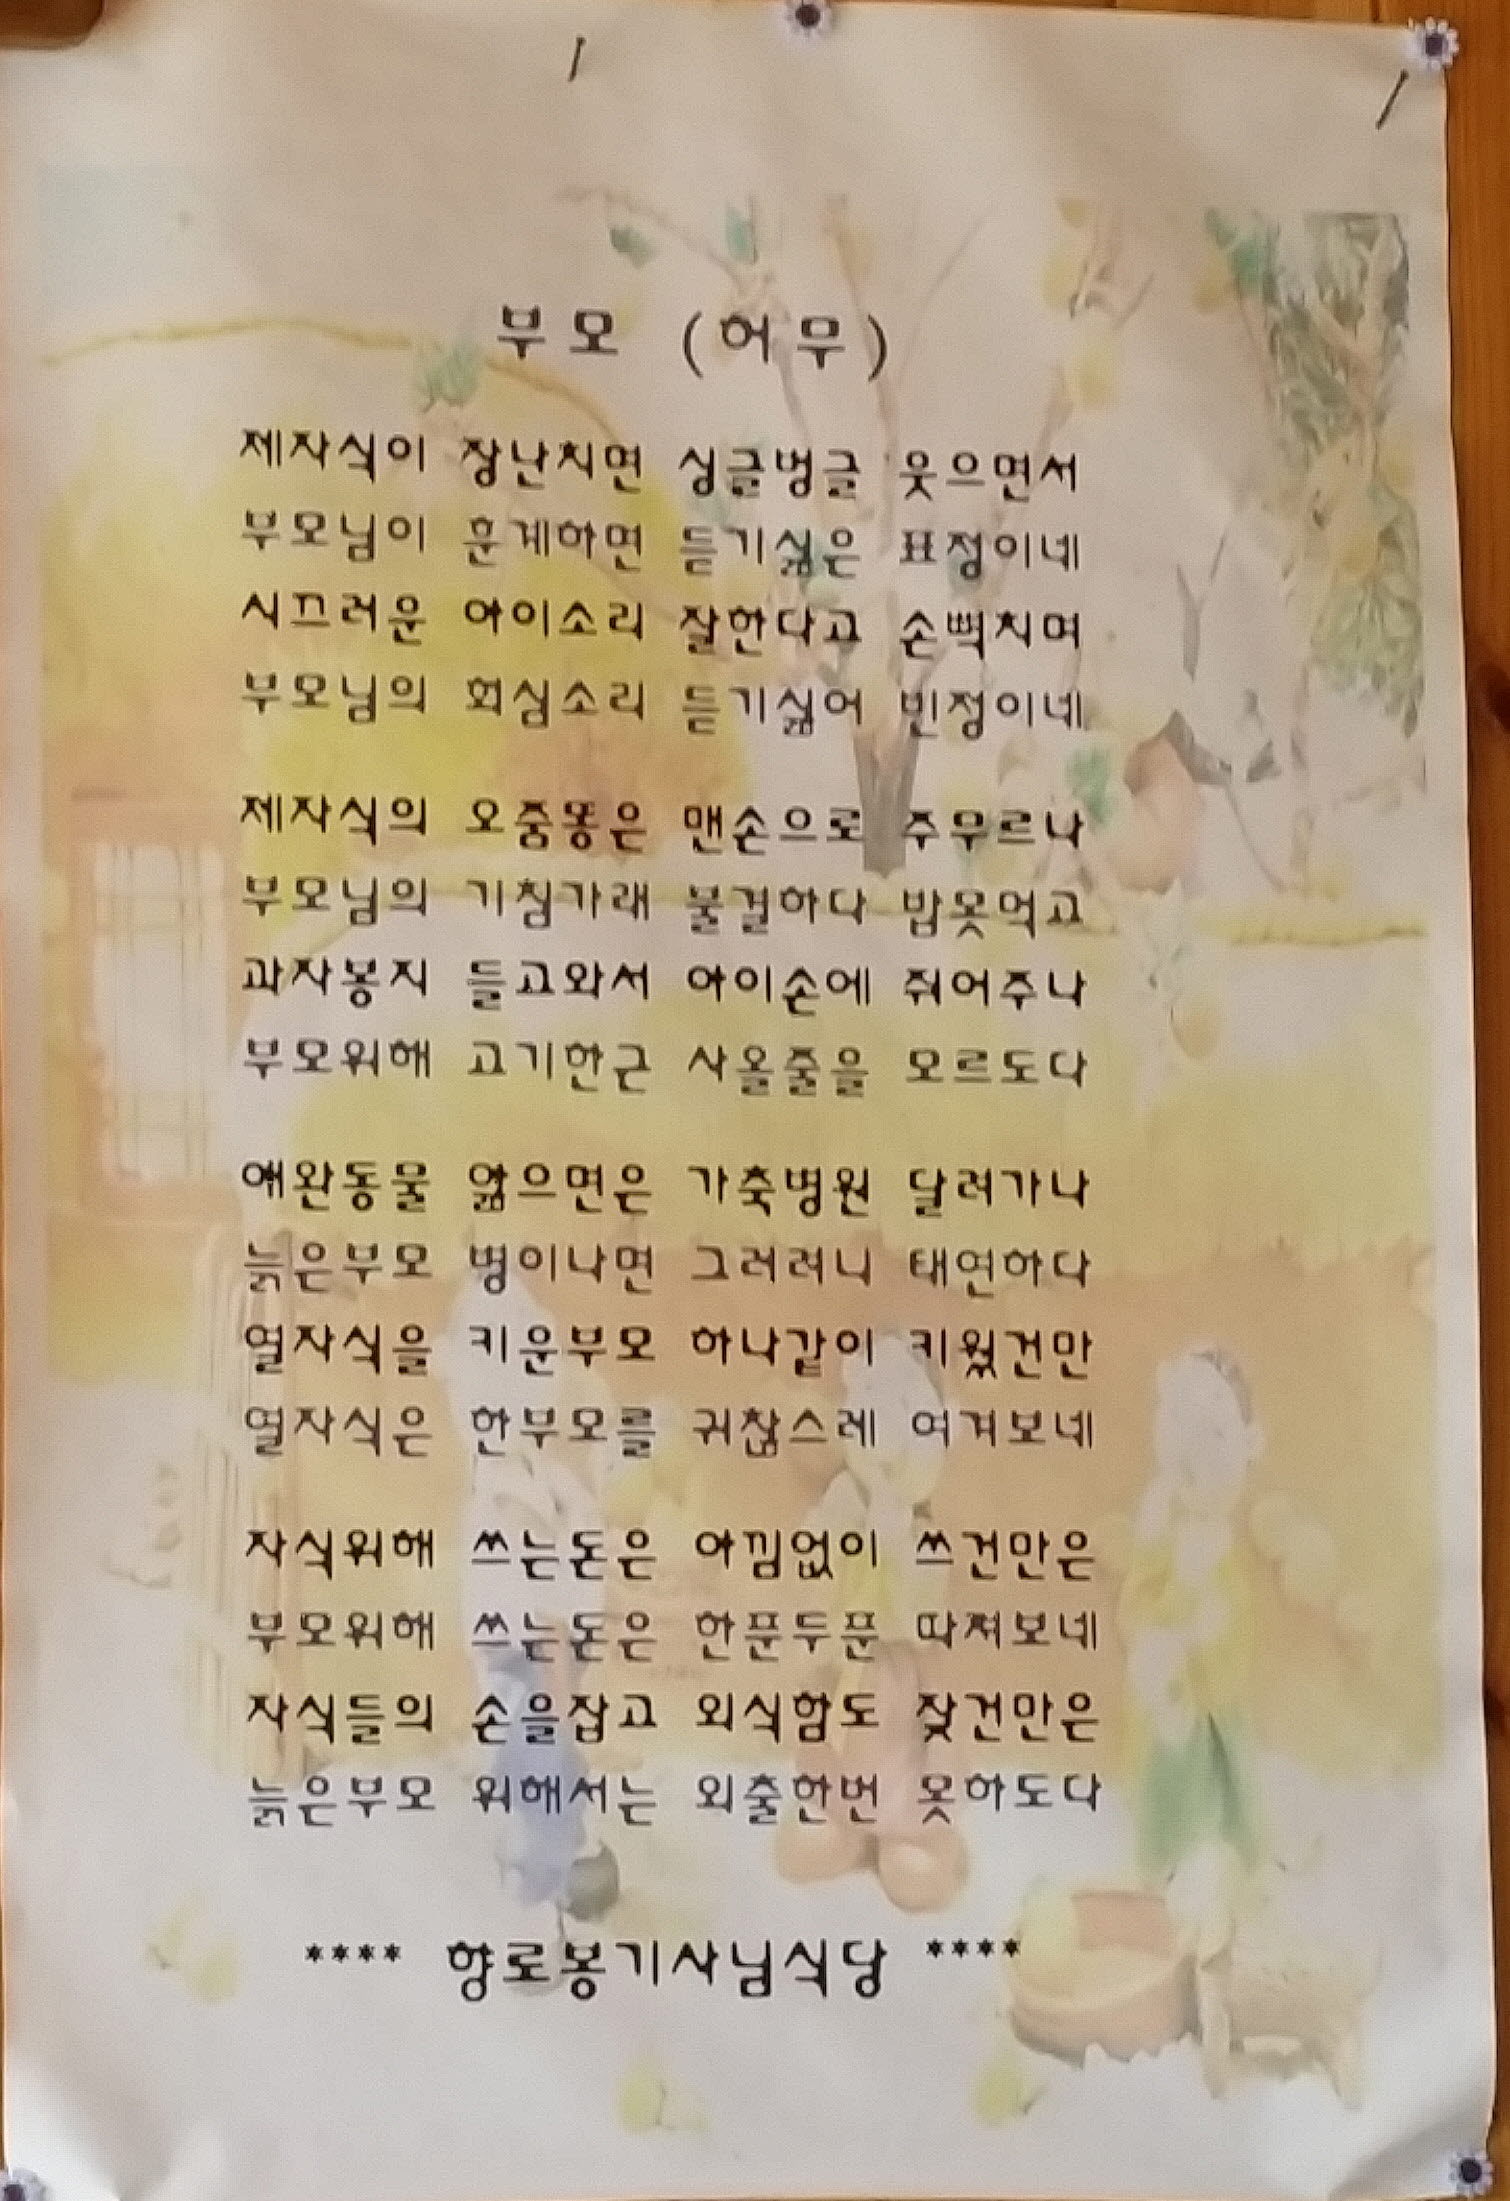 부모 (허무)
제자식이 장난치면 싱글벙글 웃으면서
부모님이 훈계하면 듣기싫은 표정이네
시끄러운 아이소리 잘한다고 손뼉치며
부모님의 회심소리 듣기싫어 빈정이네
제자식의 오줌똥은 맨손으로 주무르나
부모님의 기침가래 불결하다 밥못먹고
과자봉지 들고와서 아이손에 쥐어주나
부모위해 고기한근 사올줄을 모르도다
애완동물 앓으면은 가축병원 달려가나
늙은부모 병이나면 그러려니 태연하다
열자식을 키운부모 하나같이 키웠건만
열자식은 한부모를 귀찮스레 여겨보네
자식위해 쓰는돈은 아낌없이 쓰건만은
부모위해 쓰는돈은 한푼두푼 따져보네
자식들의 손을잡고 외식함도 잦건만은
늙은부모 위해서는 외출한번 못하도다
**** 향로봉기사님식당 ****